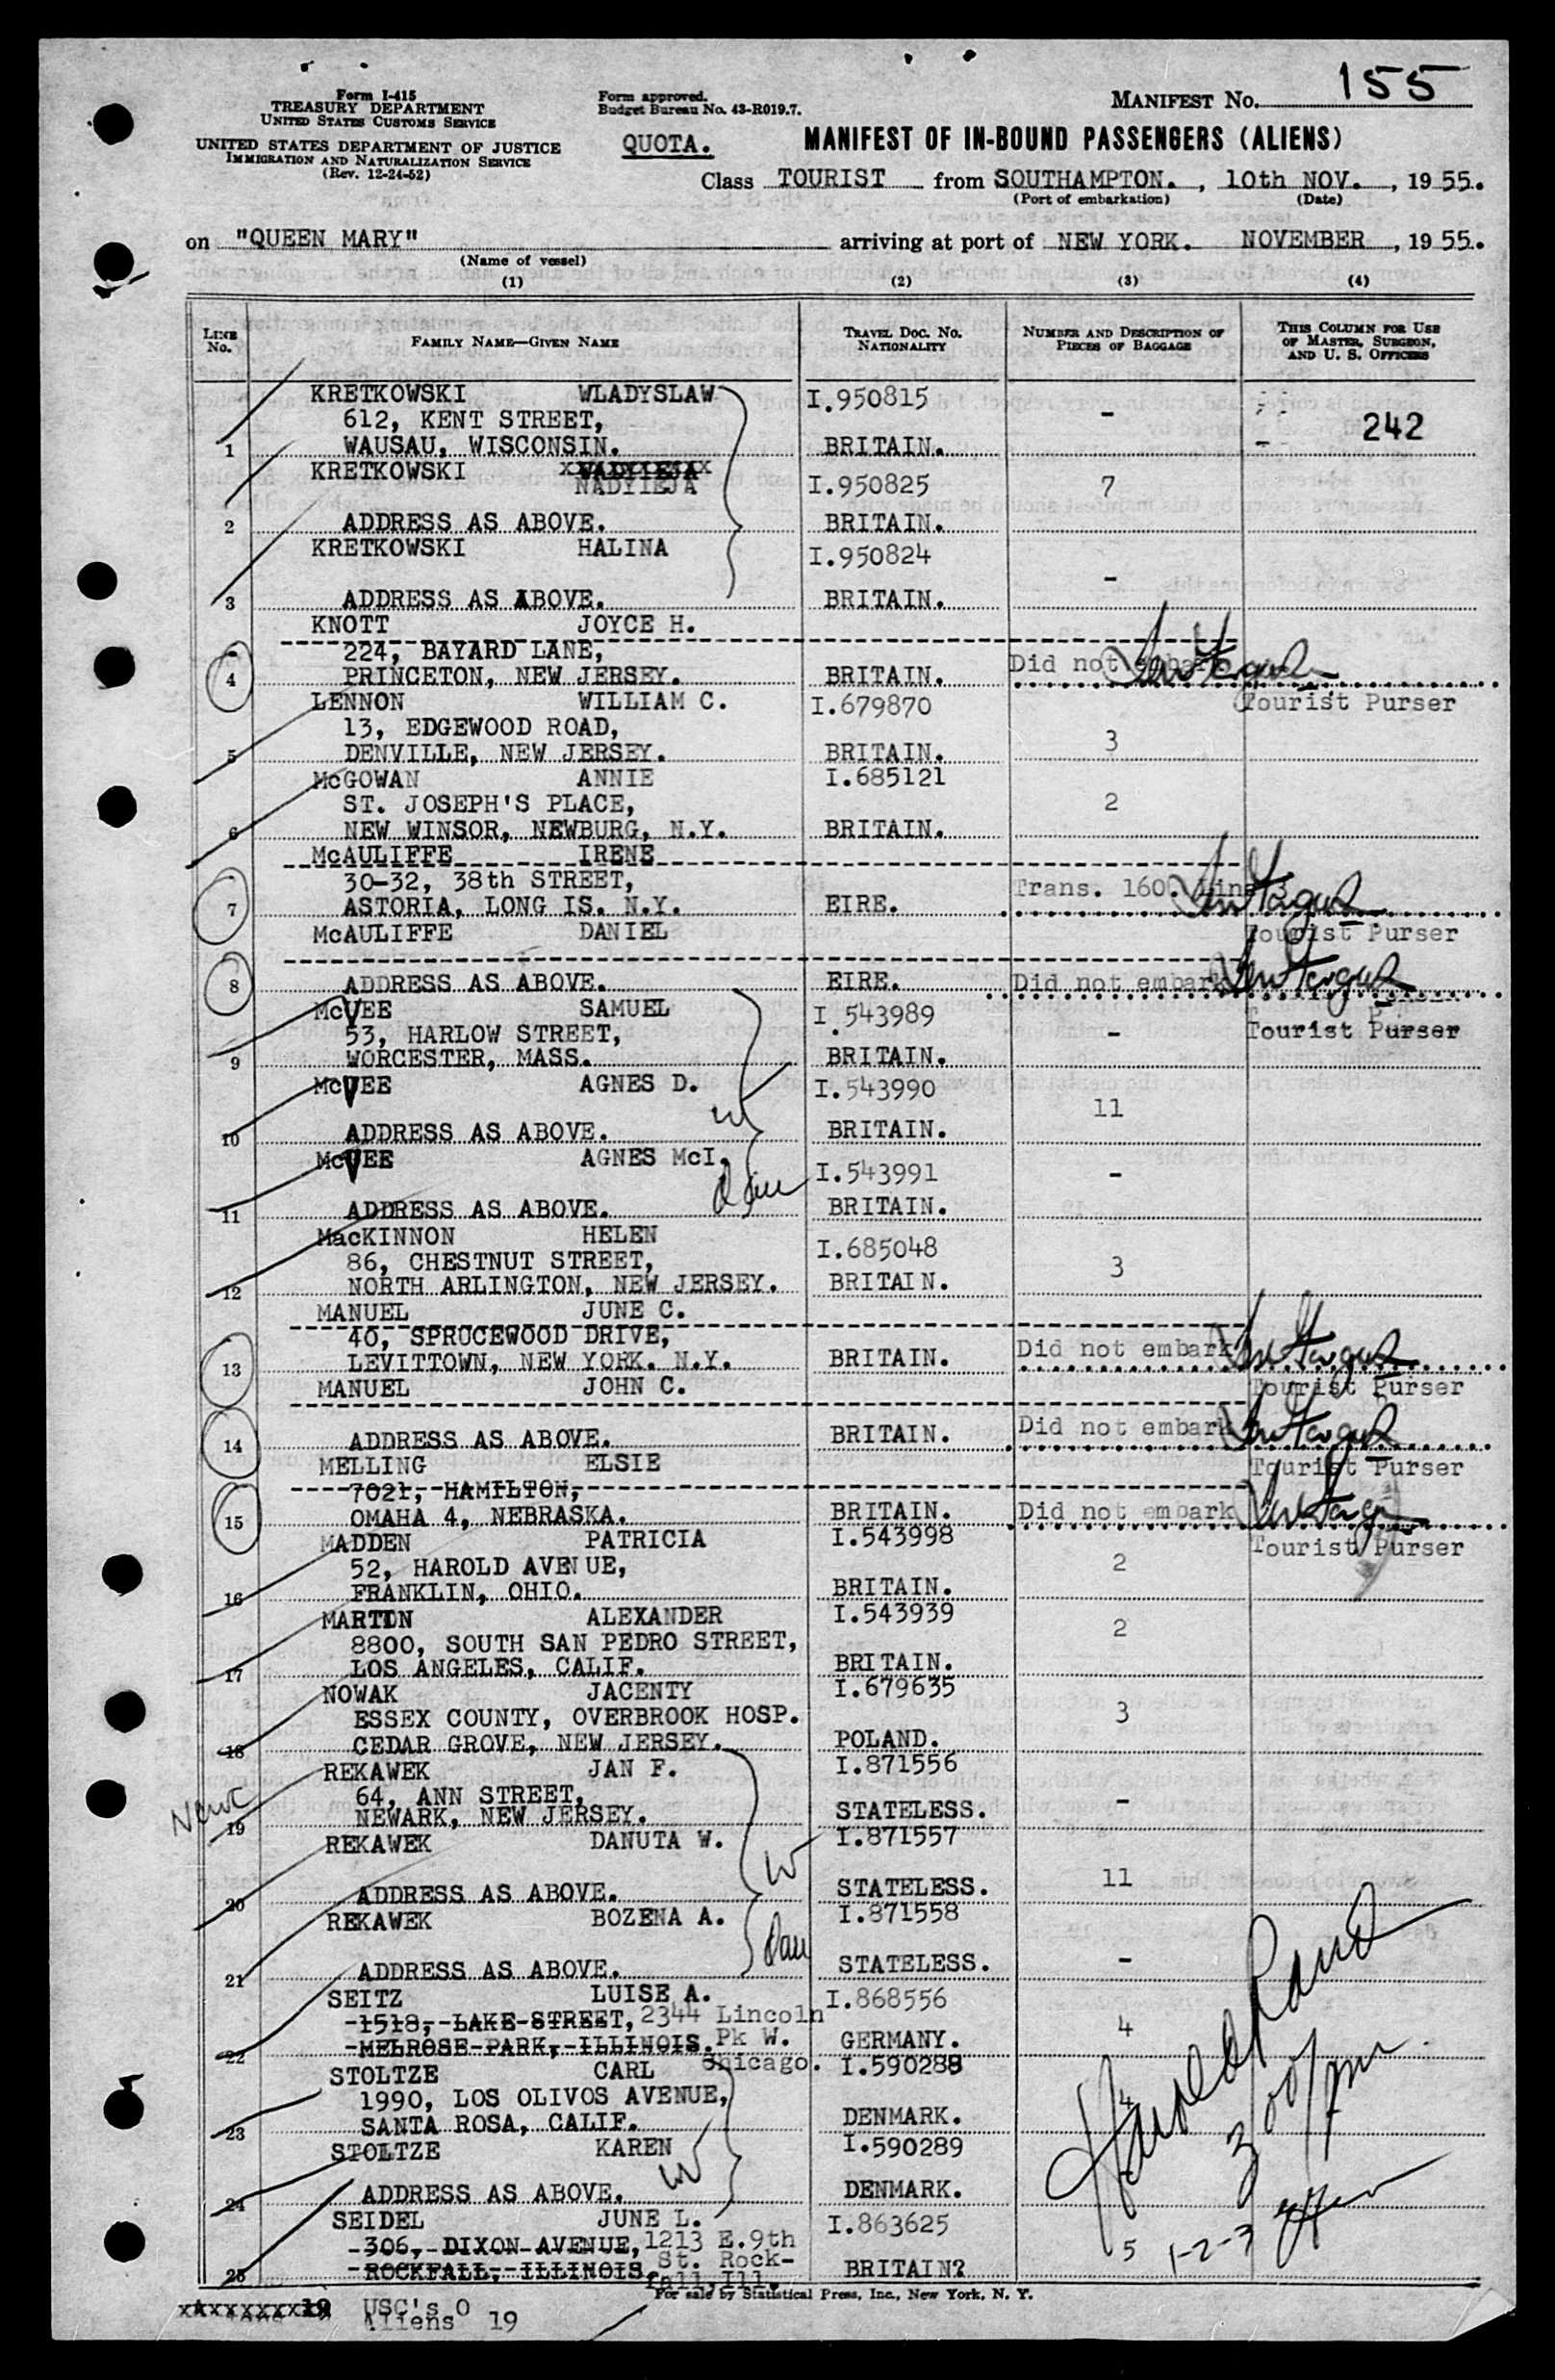 155
Form I-415
TREASURY DEPARTMENT
UNITED STATES CUSTOMS SERVICE
UNITED STATES DEPARTMENT OF JUSTICE
IMMIGRATION AND NATURALIZATION SERVICE
(Rev. 12-24-52)
Form approved.
Budget Bureau No. 43-R019.7.
MANIFEST No.
QUOTA.
MANIFEST OF IN-BOUND PASSENGERS (ALIENS)
Class TOURIST from SOUTHAMPTON. , 10th NOV. , 1955.
(Port of embarkation) (Date)
on "QUEEN MARY" arriving at port of NEW YORK. NOVEMBER , 1955.
(Name of vessel)
(1) (2) (3) (4)
LINE No. FAMILY NAME—GIVEN NAME TRAVEL DOC. NO. NATIONALITY NUMBER AND DESCRIPTION OF PIECES OF BAGGAGE THIS COLUMN FOR USE OF MASTER, SURGEON, AND U. S. OFFICERS
KRETKOWSKI WLADYSLAW I.950815 -
612, KENT STREET, 242
1 WAUSAU, WISCONSIN. BRITAIN.
KRETKOWSKI
NADYIEJA I.950825 7
2 ADDRESS AS ABOVE. BRITAIN.
KRETKOWSKI HALINA I.950824 -
3 ADDRESS AS ABOVE. BRITAIN.
KNOTT JOYCE H.
224, BAYARD LANE, Did not embark
4 PRINCETON, NEW JERSEY. BRITAIN.
Tourist Purser
LENNON WILLIAM C. I.679870
13, EDGEWOOD ROAD, 3
5 DENVILLE, NEW JERSEY. BRITAIN.
McGOWAN ANNIE I.685121
ST. JOSEPH'S PLACE, 2
6 NEW WINSOR, NEWBURG, N.Y. BRITAIN.
McAULIFFE IRENE
30-32, 38th STREET, Trans. 160. Line 3
7 ASTORIA, LONG IS. N.Y. EIRE.
Tourist Purser
McAULIFFE DANIEL
8 ADDRESS AS ABOVE. EIRE. Did not embark
Tourist Purser
McVEE SAMUEL I.543989
53, HARLOW STREET, -
9 WORCESTER, MASS. BRITAIN.
McVEE AGNES D. I.543990
W 11
10 ADDRESS AS ABOVE. BRITAIN.
McVEE AGNES McI. I.543991 -
Dau
11 ADDRESS AS ABOVE. BRITAIN.
MacKINNON HELEN I.685048
86, CHESTNUT STREET, 3
12 NORTH ARLINGTON, NEW JERSEY. BRITAIN.
MANUEL JUNE C.
40, SPRUCEWOOD DRIVE, Did not embark
13 LEVITTOWN, NEW YORK. N.Y. BRITAIN.
Tourist Purser
MANUEL JOHN C.
Did not embark
14 ADDRESS AS ABOVE. BRITAIN.
Tourist Purser
MELLING ELSIE
7021, HAMILTON,
15 OMAHA 4, NEBRASKA. BRITAIN. Did not embark
Tourist Purser
MADDEN PATRICIA I.543998
52, HAROLD AVENUE, 2
16 FRANKLIN, OHIO. BRITAIN.
MARTIN ALEXANDER I.543939
8800, SOUTH SAN PEDRO STREET, 2
17 LOS ANGELES, CALIF. BRITAIN.
NOWAK JACENTY I.679635
ESSEX COUNTY, OVERBROOK HOSP. 3
18 CEDAR GROVE, NEW JERSEY. POLAND.
REKAWEK JAN F. I.871556
64, ANN STREET, -
19 NEWARK, NEW JERSEY. STATELESS.
REKAWEK DANUTA W. I.871557
W 11
20 ADDRESS AS ABOVE. STATELESS.
REKAWEK BOZENA A. I.871558
Dau
21 ADDRESS AS ABOVE. STATELESS. -
SEITZ LUISE A. I.868556
1518, LAKE STREET, 2344 Lincoln 4
22 MELROSE PARK, ILLINOIS. Pk W. GERMANY.
Chicago.
STOLTZE CARL I.590288
1990, LOS OLIVOS AVENUE, 4
23 SANTA ROSA, CALIF. DENMARK.
STOLTZE KAREN I.590289
W
24 ADDRESS AS ABOVE. DENMARK.
SEIDEL JUNE L. I.863625
306, DIXON AVENUE, 1213 E.9th 5 1-2-3
25 ROCKFALL, ILLINOIS. St. Rock- BRITAIN?
fall, Ill.
For sale by Statistical Press, Inc., New York, N. Y.
19 USC's 0
Aliens 19